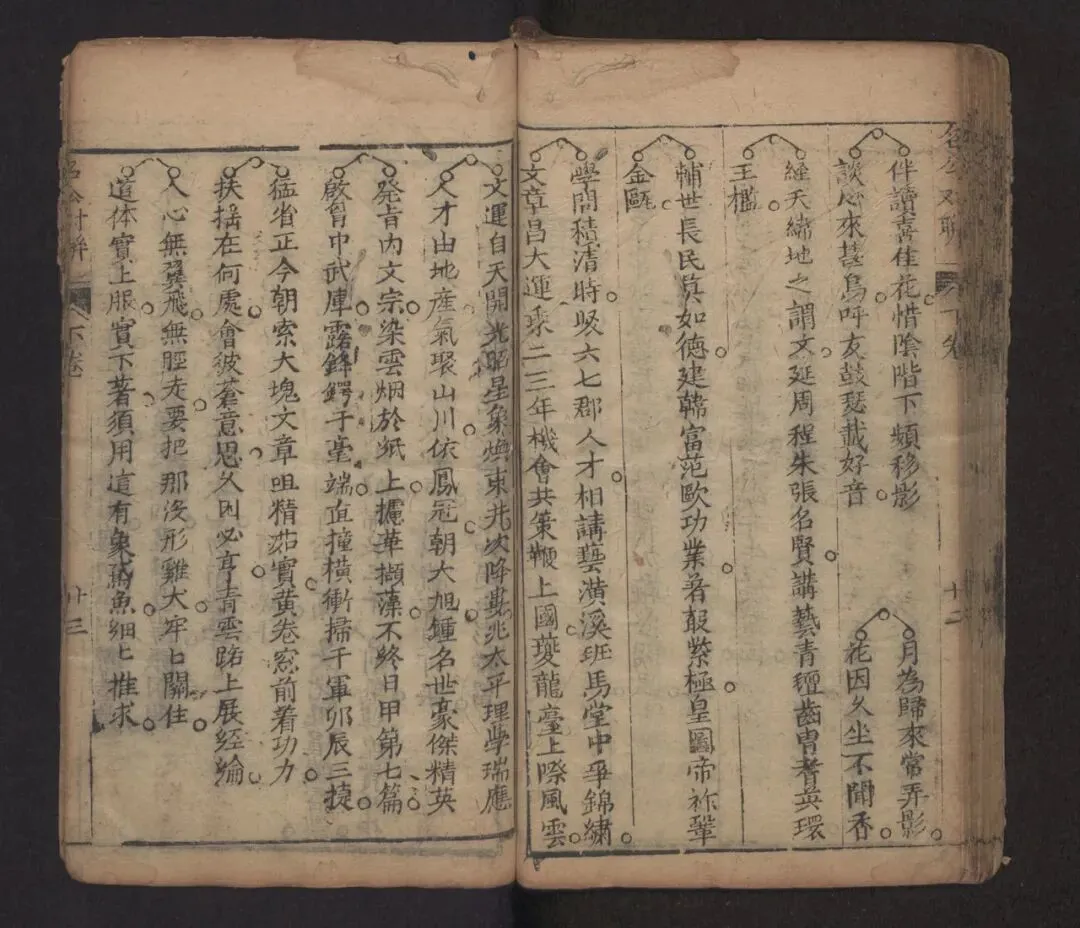 名公对聯
下卷
十二
伴讀喜佳花惜陰階下頻移影
談心來甚鳥呼友鼓瑟載好音
月為歸來常弄影
花因久坐不聞香
經天緯地之謂文延周程朱張名賢講藝青壇齒胄耆英環
玉檻
輔世長民莫如德建韓富范歐功業著殿紫極皇圖帝祚鞏
金甌
學問積清時吸六七郡人才相講藝潢溪班馬堂中爭錦繡
文章昌大運乘二三年機會共策鞭上國夔龍臺上際風雲
文運自天開光昭星象煥東井次降婁兆太平理學瑞應
人才由地產氣聚山川依鳳冠朝大旭鍾名世豪傑精英
發胷內文宗染雲烟於紙上攄華擷藻不終日甲第七篇
啟胷中武庫露鋒鍔于毫端直撞橫衝掃千軍卯辰三捷
猛省正今朝索大塊文章咀精茹實黃卷窓前着功力
扶搖在何處會彼蒼意思久困必亨青雲路上展經綸
人心無翼飛無脛走要把那沒形雞犬牢匕關住
道体實上服實下著須用這有象鳶魚細匕推求
名公对聯
下卷
十三